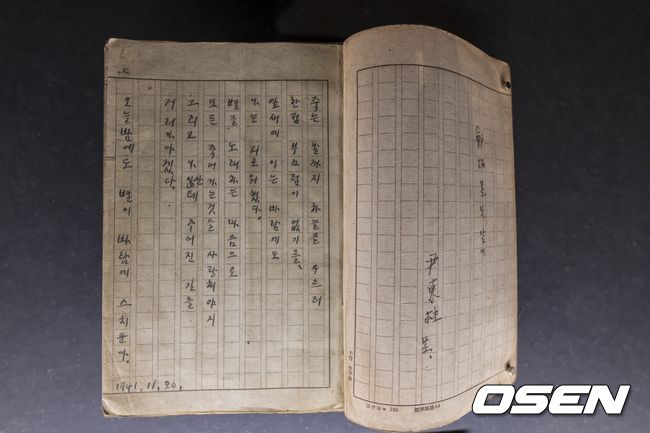 鄭炳昱 兄 앞에
尹東柱 呈.
コクヨ 165
標準規格A4
죽는 날까지 하늘을 우르러
한점 부끄럼이 없기를,
잎새에 이는 바람에도
나는 괴로워했다.
별을 노래하는 마음으로
모든 죽어가는것을 사랑해야지
그리고 나안테 주어진 길을
거러가야겠다.
오늘밤에도 별이 바람에 스치운다.
1941.11.20.
OSEN